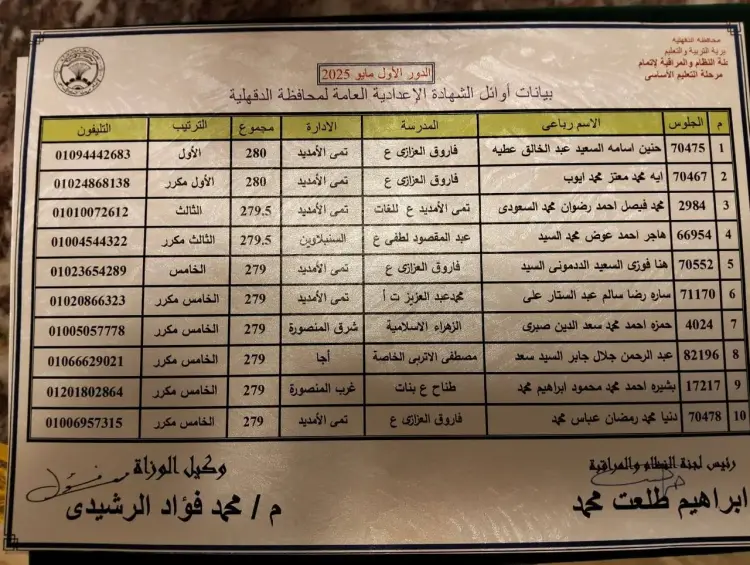 محافظه الدقهلية
يرية التربية والتعليم
نة النظام والمراقبة لإتمام
مرحلة التعليم الأساسى
الدور الأول مايو 2025
بيانات أوائل الشهادة الإعدادية العامة لمحافظة الدقهلية
م الجلوس الاسم رباعى المدرسة الادارة مجموع الترتيب التليفون
1 70475 حنين اسامه السعيد عبد الخالق عطيه فاروق العزازى ع تمى الأمديد 280 الأول 01094442683
2 70467 ايه محمد معتز محمد ايوب فاروق العزازى ع تمى الأمديد 280 الأول مكرر 01024868138
3 2984 محمد فيصل احمد رضوان محمد السعودى تمى الأمديد ع للغات تمى الأمديد 279.5 الثالث 01010072612
4 66954 هاجر احمد عوض محمد السيد عبد المقصود لطفى ع السنبلاوين 279.5 الثالث مكرر 01004544322
5 70552 هنا فوزى السعيد الددمونى السيد فاروق العزازى ع تمى الأمديد 279 الخامس 01023654289
6 71170 ساره رضا سالم عبد الستار على محمدعبد العزيز ت أ تمى الأمديد 279 الخامس مكرر 01020866323
7 4024 حمزه احمد محمد سعد الدين صبرى الزهراء الاسلامية شرق المنصورة 279 الخامس مكرر 01005057778
8 82196 عبد الرحمن جلال جابر السيد سعد مصطفى الاتربى الخاصة أجا 279 الخامس مكرر 01066629021
9 17217 بشيره احمد محمد محمود ابراهيم محمد طناح ع بنات غرب المنصورة 279 الخامس مكرر 01201802864
10 70478 دنيا محمد رمضان عباس محمد فاروق العزازى ع تمى الأمديد 279 الخامس مكرر 01006957315
رئيس لجنة النظام والمراقبة
ابراهيم طلعت محمد
وكيل الوزاة
م / محمد فؤاد الرشيدى